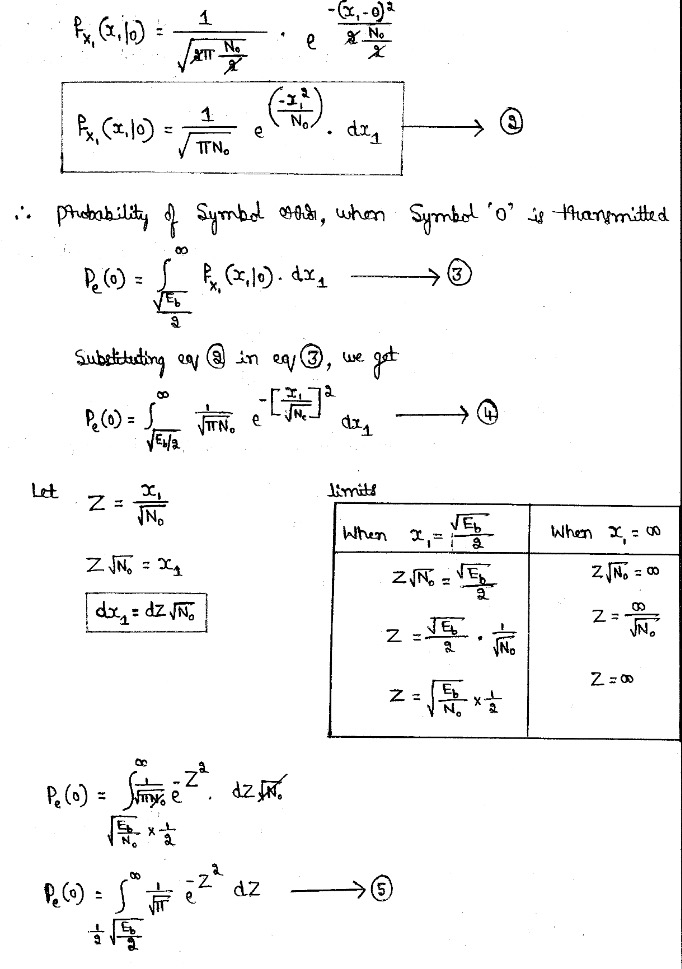 P_{X₁}(x₁|0) = 1/√(2π N₀/2) · e^{-(x₁-0)²/(2 N₀/2)}
P_{X₁}(x₁|0) = 1/√(πN₀) e^{(-x₁²/N₀)} · dx₁ ⟶ ②
∴ Probability of Symbol error, when Symbol '0' is transmitted
P_e(0) = ∫_{√E_b/2}^{∞} P_{X₁}(x₁|0) · dx₁ ⟶ ③
Substituting eq ② in eq ③, we get
P_e(0) = ∫_{√E_b/2}^{∞} 1/√(πN₀) e^{-[x₁/√N₀]²} dx₁ ⟶ ④
Let Z = x₁/√N₀
Z√N₀ = x₁
dx₁ = dZ√N₀
limits
When x₁ = √E_b/2
When x₁ = ∞
Z√N₀ = √E_b/2
Z√N₀ = ∞
Z = √E_b/2 · 1/√N₀
Z = ∞/√N₀
Z = √(E_b/N₀) × 1/2
Z = ∞
P_e(0) = ∫_{√(E_b/N₀) × 1/2}^{∞} 1/√(πN₀) e^{-Z²} · dZ√N₀
P_e(0) = ∫_{1/2 √(E_b/2)}^{∞} 1/√π e^{-Z²} dZ ⟶ ⑤